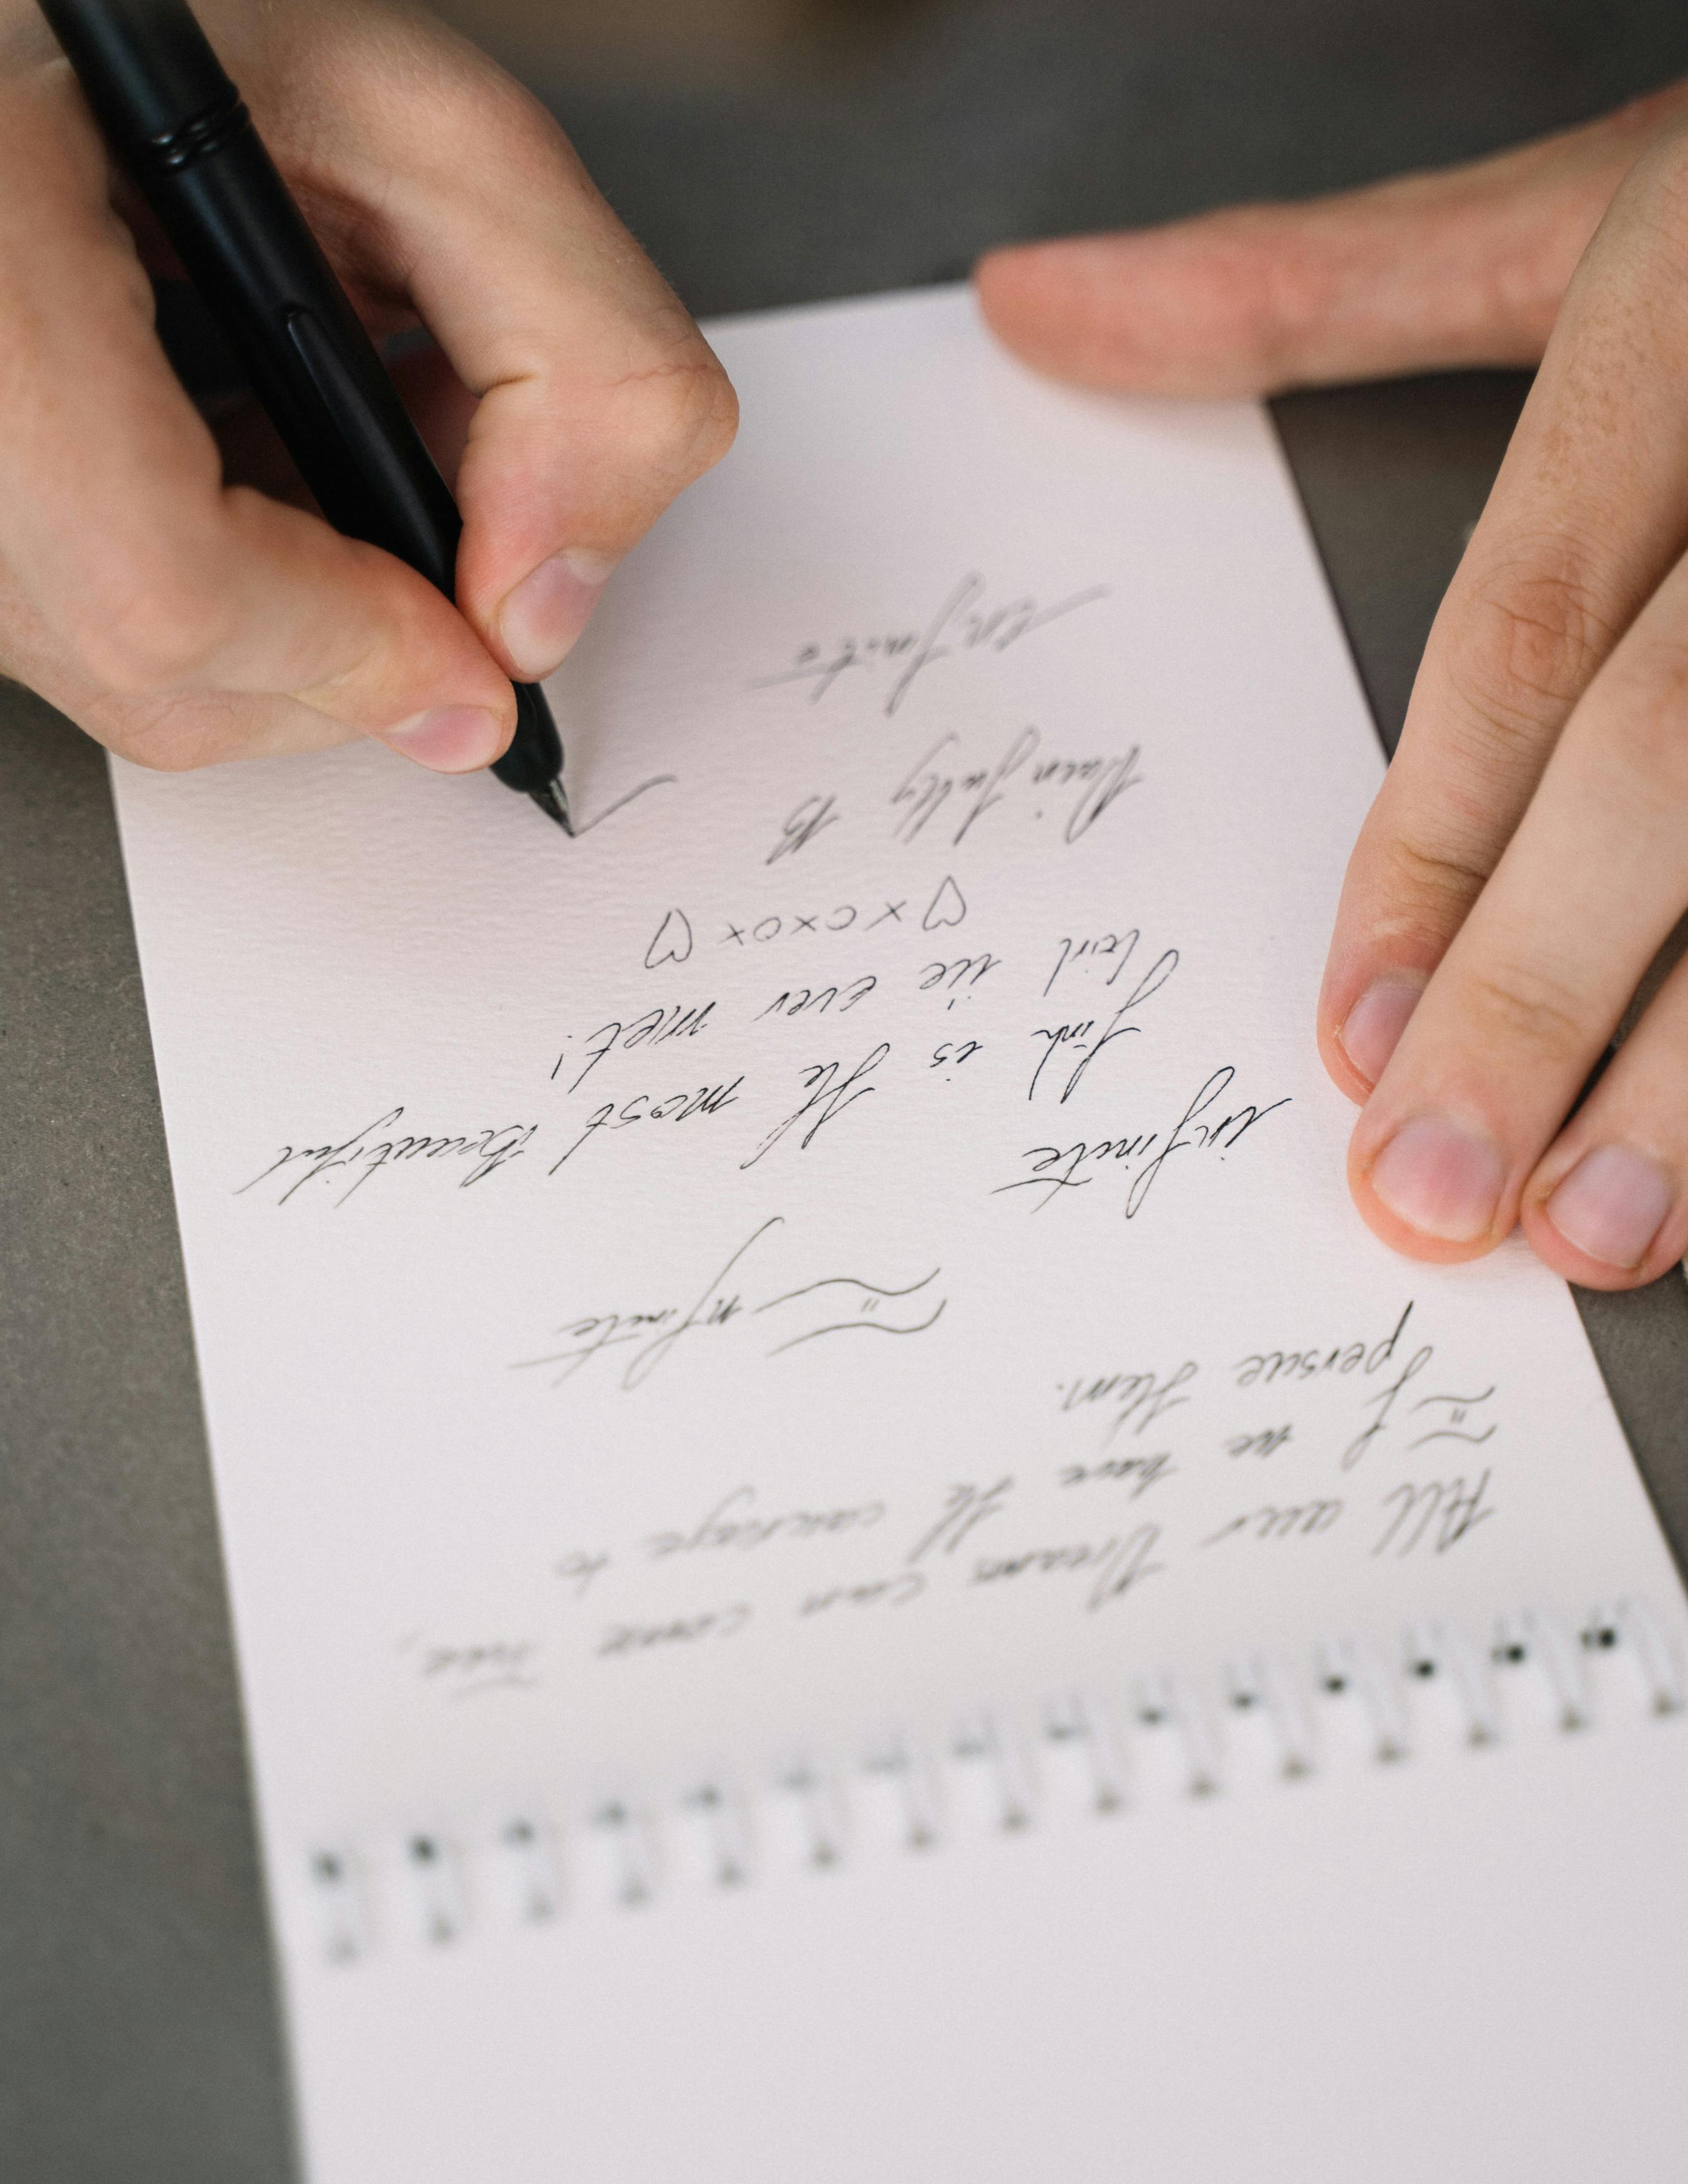 All our Dreams can come True,
if we have the courage to
persue them.
infinite
infinite
Link is the most Beautiful
Girl we ever met!
♡xoxox♡
Painfully B
infinite